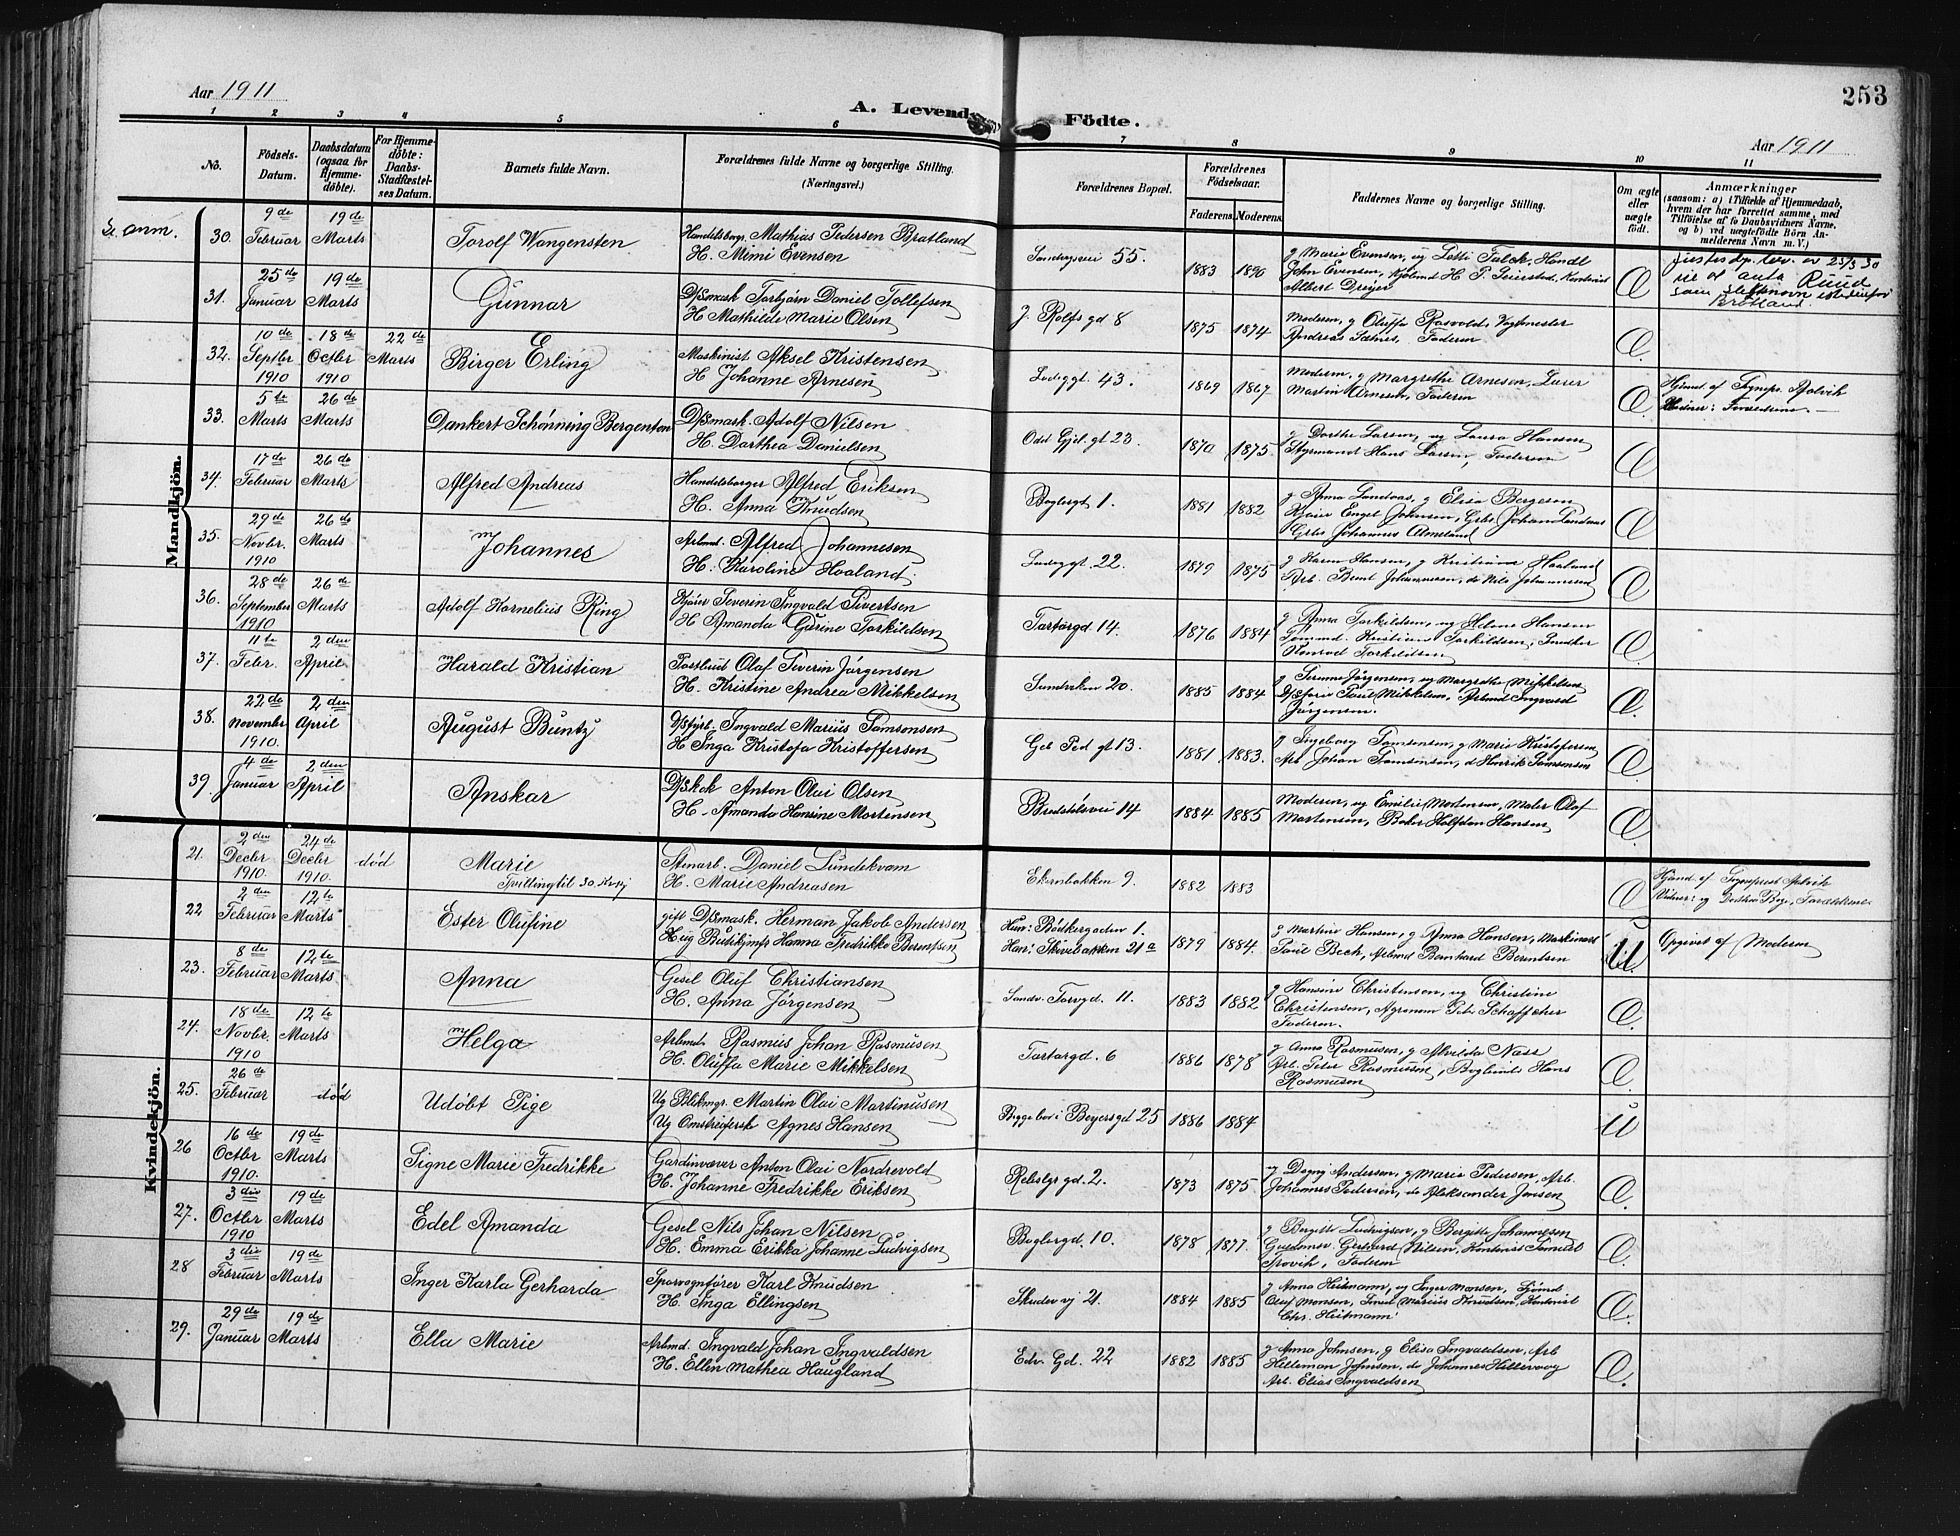 Aar 1911
A. Levende Födte.
253
Aar 1911
1 2 3 4 5 6 7 8 9 10 11
Nô.
Födsels-Datum.
Daabsdatum (ogsaa for Hjemmedöbte).
For Hjemmedöbte: Daabs-Stadfæstelses Datum.
Barnets fulde Navn.
Forældrenes fulde Navne og borgerlige Stilling. (Næringsvei.)
Forældrenes Bopæl.
Forældrenes Födselsaar.
Faderens. Moderens.
Faddernes Navne og borgerlige Stilling.
Om ægte eller uægte födt.
Anmærkninger (saasom: a) i Tilfælde af Hjemmedaab, hvem der har forrettet samme, med Tilföielse af to Daabsvidners Navne, og b) ved uægtefödte Börn Anmelderens Navn m. V.)
Mandkjön.
Se anm.
30. 9de Februar 19de Marts Torolf Wangensten
Handelsborg. Mathias Pedersen Bratland
H. Mimi Evensen
55. 1883 1890
g Marie Evensen, ug Lotti Falck, Handl
John Evensen,
Albert Dreyer
Æ
Ruud
som slektsnavn istedenfor
Bratland
31. 25de Januar 19de Marts Gunnar
D/Smask Torbjörn Daniel Tollefsen
H. Mathilde Marie Olsen
J. Rolfs gd 8 1875 1874
Moderen, g Oluffa Rasvold, Vogtmester
Andreas Sætnes, Faderen
Æ.
32. 10de Septbr 1910 18de Octbr 1910 22de Marts Birger Erling
Maskinist Aksel Kristensen
H Johanne Arnesen
Ladeggt 43. 1869 1867
Moderen, g Margrethe Arnesen, Lærer
Martin Arnesen, Faderen
Æ.
Hjemd. af Sognepr.
Vidner: Forældrene.
33. 5te Marts 26de Marts Dankert Schönning Bergenton
D/Smask. Adolf Nilsen
H. Dorthea Danielsen
Odd Gjel. gt 23. 1870 1875
g Dorthe Larsen, ug Laura Hansen
Styrmand Hans Larsen, Faderen
Æ
34. 17de Februar 26de Marts Alfred Andreas
Handelsborger Alfred Eriksen
H. Anna Knudsen
Boglergt 1. 1881 1882
g Anna Landaas, g Elisa Bergesen
Kjører Engel Johnsen, Grbr Johan Landaas
Grbr Johannes Almeland
Æ
35. 29de Novbr. 1910 26de Marts Johannes
Arbmd. Alfred Johannesen
H. Karoline Haaland
Ladeggt. 22. 1879 1875
g Karen Hansen, g Kristiane Haaland
Arb. Bernt Johannesen, do Nils Johannesen
Æ
36. 28de September 1910 26de Marts Adolf Kornelius Ring
Kjører Severin Ingvald Sivertsen
H Amanda Gurine Torkildsen
Tartargd. 14. 1876 1884
g Anna Torkildsen, ug Helene Hansen
Tömmd. Kristian Torkildsen, Snedker
Konrad Torkildsen
Æ
37. 11te Febr. 2den April Harald Kristian
Postbud Olaf Severin Jörgensen
H. Kristine Andrea Mikkelsen
Sandviken 20. 1885 1884
g Serine Jörgensen, ug Margrethe Mikkelsen
Mikkelsen, Arbmd Ingvard
Jörgensen.
Æ.
38. 22de November 1910. 2den April August Buntz
D/Sfyrb. Ingvald Marius Samsonsen
H Inga Kristofa Kristoffersen
Geb Ped gt 13. 1881 1883.
g Ingeborg Samsonsen, g Marie Kristofersen
Arb Johan Samsonsen, do Henrik Samsonsen
Æ
39. 4de Januar 2den April Anskar
D/Skok Anton Olai Olsen
H. Amanda Hansine Mortensen
Bredalsvei 14 1884 1885
Moderen, ug Emilie Mortensen, Maler Olaf
Mortensen, Baker Halfdan Hansen
Æ.
Kvindekjön.
21. 2den Decbr 1910. 24de Decbr 1910. död Marie
Tvilling til 30
Stenarb. Daniel Sundekvam
H. Marie Andreasen
Ekernbakken 9. 1882 1883
Æ
Hjemd af Sogneprest
Vidner: Forældrene
22 2den Februar 12te Marts Ester Olufine
gift D/Smask. Herman Jakob Andersen
Hug Butikjmfr Hanna Fredrikke Berentsen
Hun: Bödkergaden 1.
Han: Skivebakken 21a 1879 1884.
g Martine Hansen, g Anna Hansen, Maskinarb
Bech, Arbmd Bernhard Berentsen
U.
Opgivet af Moderen
23. 8de Februar 12te Marts Anna
Gesel Oluf Christiansen
H. Anna Jörgensen
Sandv. Torvgd. 11. 1883 1882
g Hansine Christensen, ug Christine
Christensen, Agronom Peter
Faderen.
Æ.
24. 18de Novbr. 1910 12te Marts Helga
Arbmd Rasmus Johan Rasmusen
H. Oluffa Marie Mikkelsen
Tartargd. 6 1886 1878
g Anna Rasmusen, g Alvilda Næss
Arb. Peter Rasmusen, Hans
Rasmusen
Æ
25. 26de Februar död Udöbt Pige
Ug Blikmgr. Martin Olai Martinusen
Ug Omstreiferske Agnes Hansen
Beyersgd 25 1886 1884
U
26 16de Octbr 1910. 19de Marts Signe Marie Fredrikke
Gardinvæver Anton Olai Nordrevold
H. Johanne Fredrikke Eriksen
Rebslgr gd. 2. 1873 1875
g Dagny Andersen, g Marie Pedersen, Arb.
Johannes Pedersen, do Aleksander Jensen
Æ.
27. 3die Octbr 1910 19de Marts Edel Amanda
Gesel Nils Johan Nilsen
H. Emma Erikka Johanne Ludvigsen
Boglergd. 10. 1878 1877.
g Bergitte Ludvigsen, g Bergitte Johannesen
Gerhard Nilsen, Kontorist Samuel
Faderen
Æ.
28 3die Februar 19de Marts Inger Karla Gerharda
Sporvognförer Karl Knudsen
H. Inga Ellingsen
Skudev vj 21. 1884 1885
g Anna Heitmann, ug Inger Monsen, Sjömd
Oluf Monsen, Marius Knudsen, Kontorist
Chr. Heitmann
Æ.
29. 29de Januar 19de Marts Ella Marie
Arbmd. Ingvald Johan Ingvaldsen
H. Ellen Mathea Haugland
Edv. Gd. 22 1882 1885
g Anna Johnsen, g Elisa Ingvaldsen, Arb
Hilleman Johnsen, do Johannes Hillevaag
Arb. Elias Ingvaldsen
Æ.